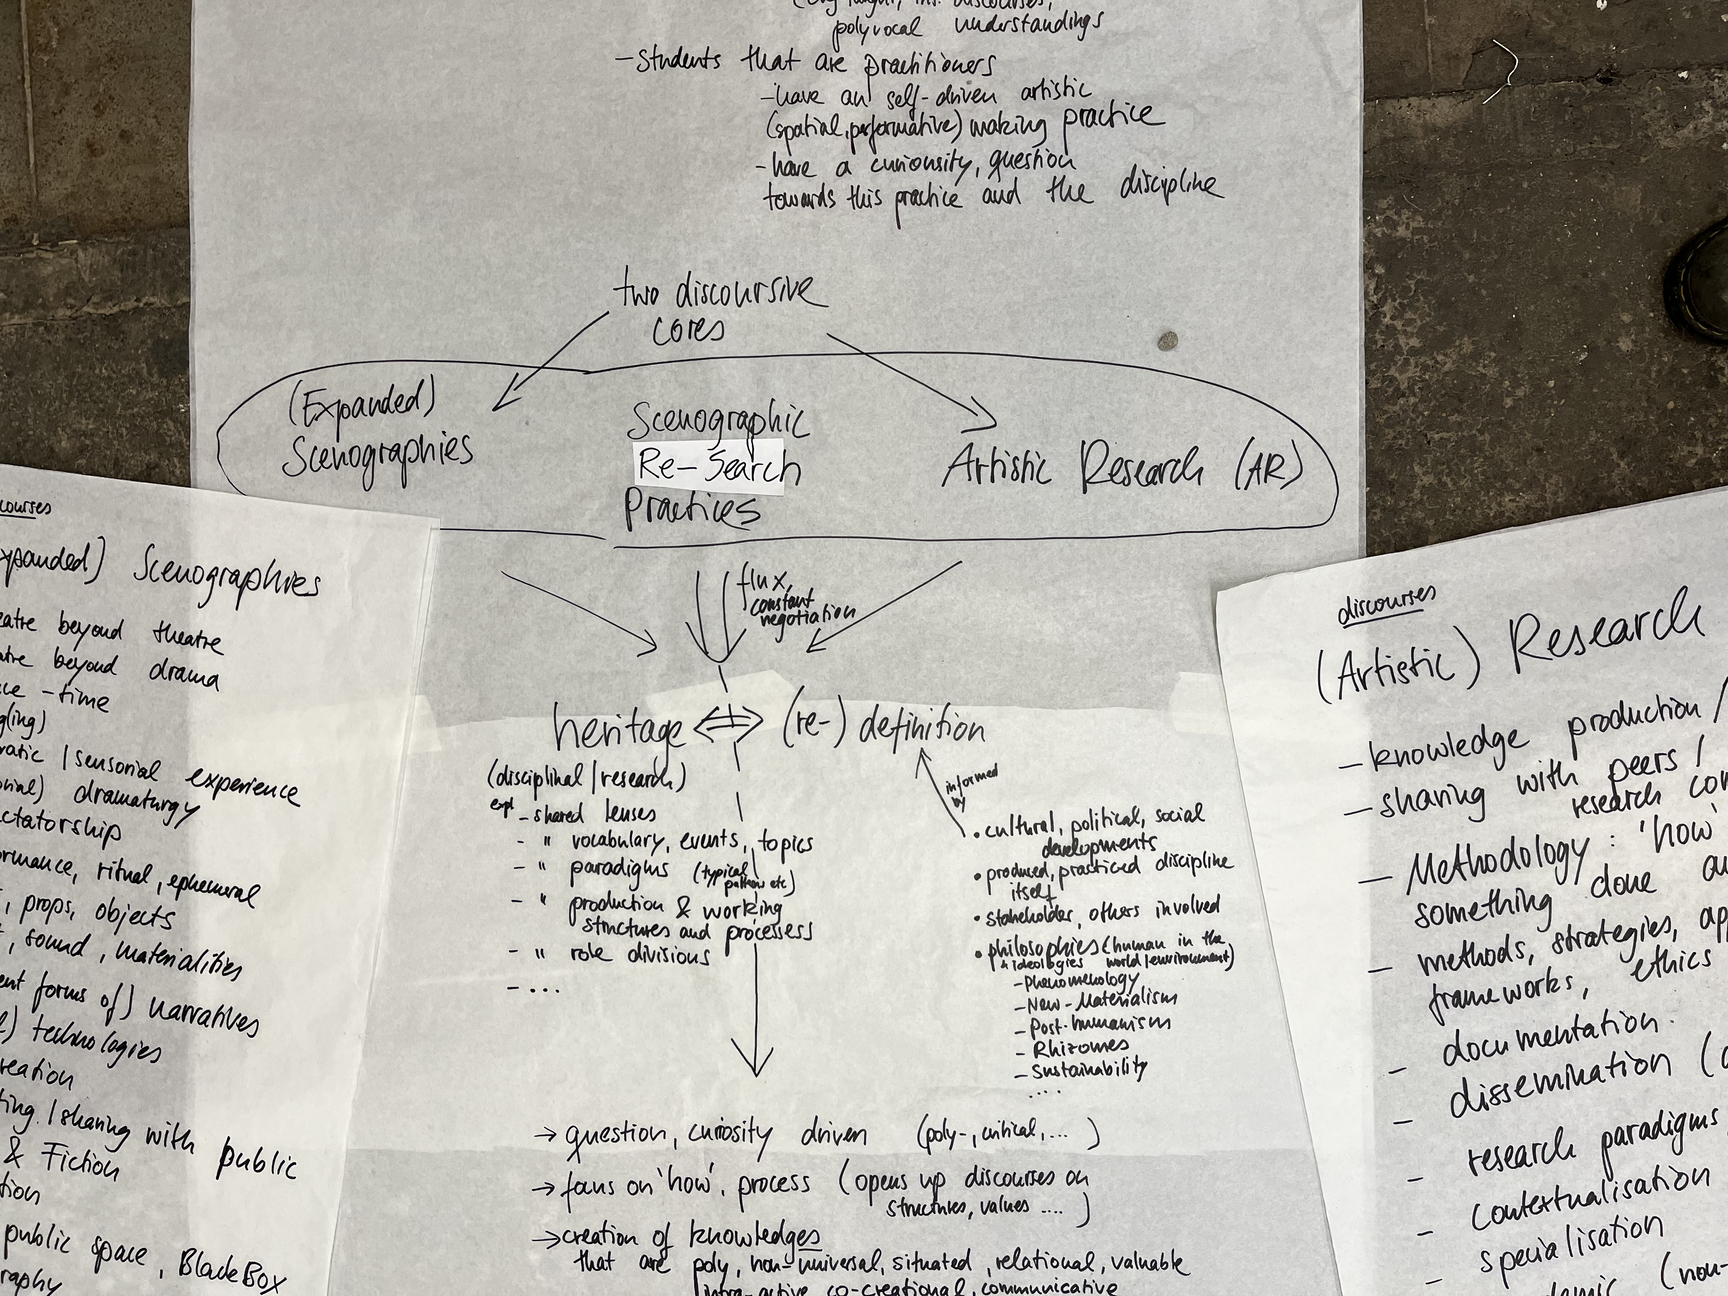 polyvocal understandings
- Students that are practitioners
- have an self-driven artistic
(spatial, performative) making practice
- have a curiousity, question
towards this practice and the discipline
two discoursive
cores
(Expanded)
Scenographies
Scenographic
Re-Search
Practices
Artistic Research (AR)
flux,
constant
negotiation
heritage ⇔ (re-) definition
(disciplinal / research)
- shared lenses
- " vocabulary, events, topics
- " paradigms (typical
etc)
- " production & working
structures and processess
- " role divisions
- ...
informed
by
• cultural, political, social
developments
• produced, practiced discipline
itself
• stakeholder, others involved
• philosophies (human in the
+ ideologies world/environment)
- Phenomenology
- New-Materialism
- Post-humanism
- Rhizomes
- Sustainability
....
→ question, curiosity driven (poly-, critical, ... )
→ focus on 'how', process (opens up discourses on
structures, values .... )
→ creation of knowledges
that are poly, non-universal, situated, relational, valuable
intra-active, co-creational, communicative
courses
xpanded) Scenographies
eatre beyond theatre
atre beyond drama
ce - time
g(ing)
ratic / sensorial experience
orial) dramaturgy
ctatorship
ormance, ritual, ephemeral
, props, objects
, sound, materialities
ent forms of) narratives
technologies
reation
ting / sharing with public
& Fiction
tion
public space, BlackBox
graphy
discourses
(Artistic) Research
- knowledge production /
- sharing with peers /
research com
- Methodology : 'how'
something done
- methods, strategies, app
frameworks, ethics
- documentation
- dissemination (
- research paradigms,
- contextualisation
- specialisation
- demic (non-